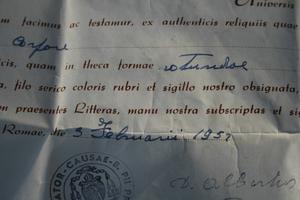 Universis
facimus ac testamur, ex authenticis reliquiis quae
corpore
cis, quam in theca formae rotundae
a, filo serico coloris rubri et sigillo nostro obsignata,
praesentes Litteras, manu nostra subscriptas et sig
Romae, die 3 Februarii 195
ATOR·CAUSAE·B. PII PA
Albertus